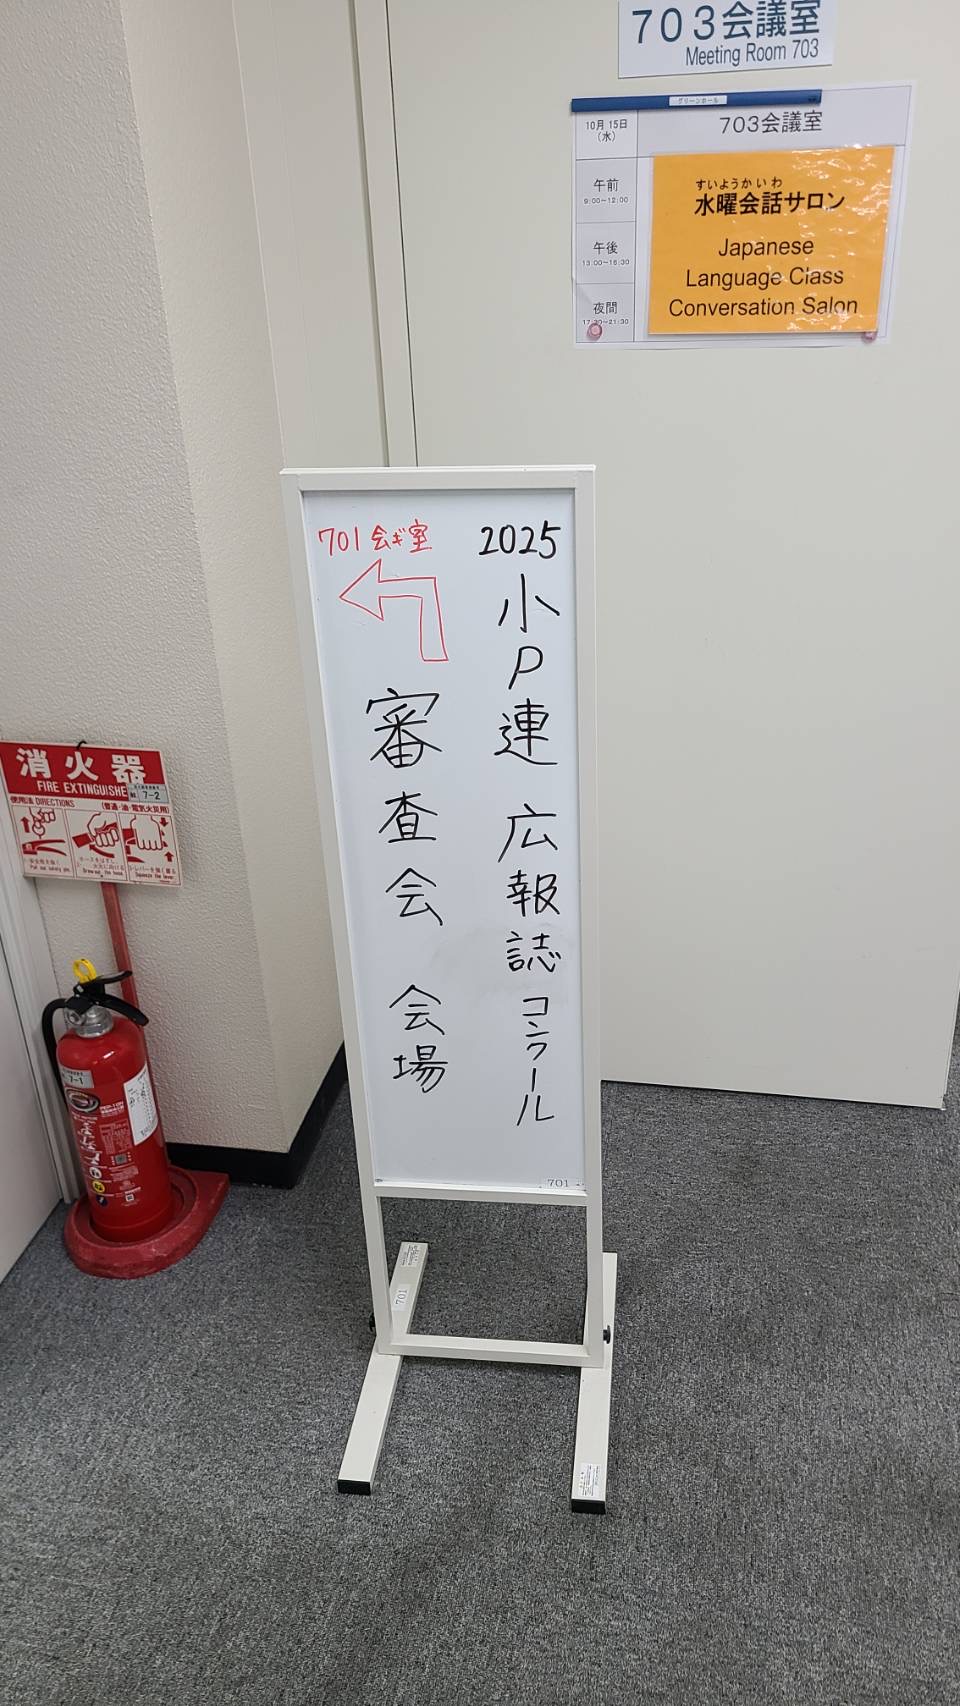 703会議室
Meeting Room 703
グリーンホール
10月 15日
(水)
703会議室
午前
9:00~12:00
午後
13:00~16:30
夜間
17:30~21:30
すいようかいわ
水曜会話サロン
Japanese
Language Class
Conversation Salon
2025
小P連 広報誌コンクール
701会ギ室
審査会 会場
701
701
消火器
FIRE EXTINGUISHE
7-2
使用法 DIRECTIONS
(普通・油・電気火災用)
7-1